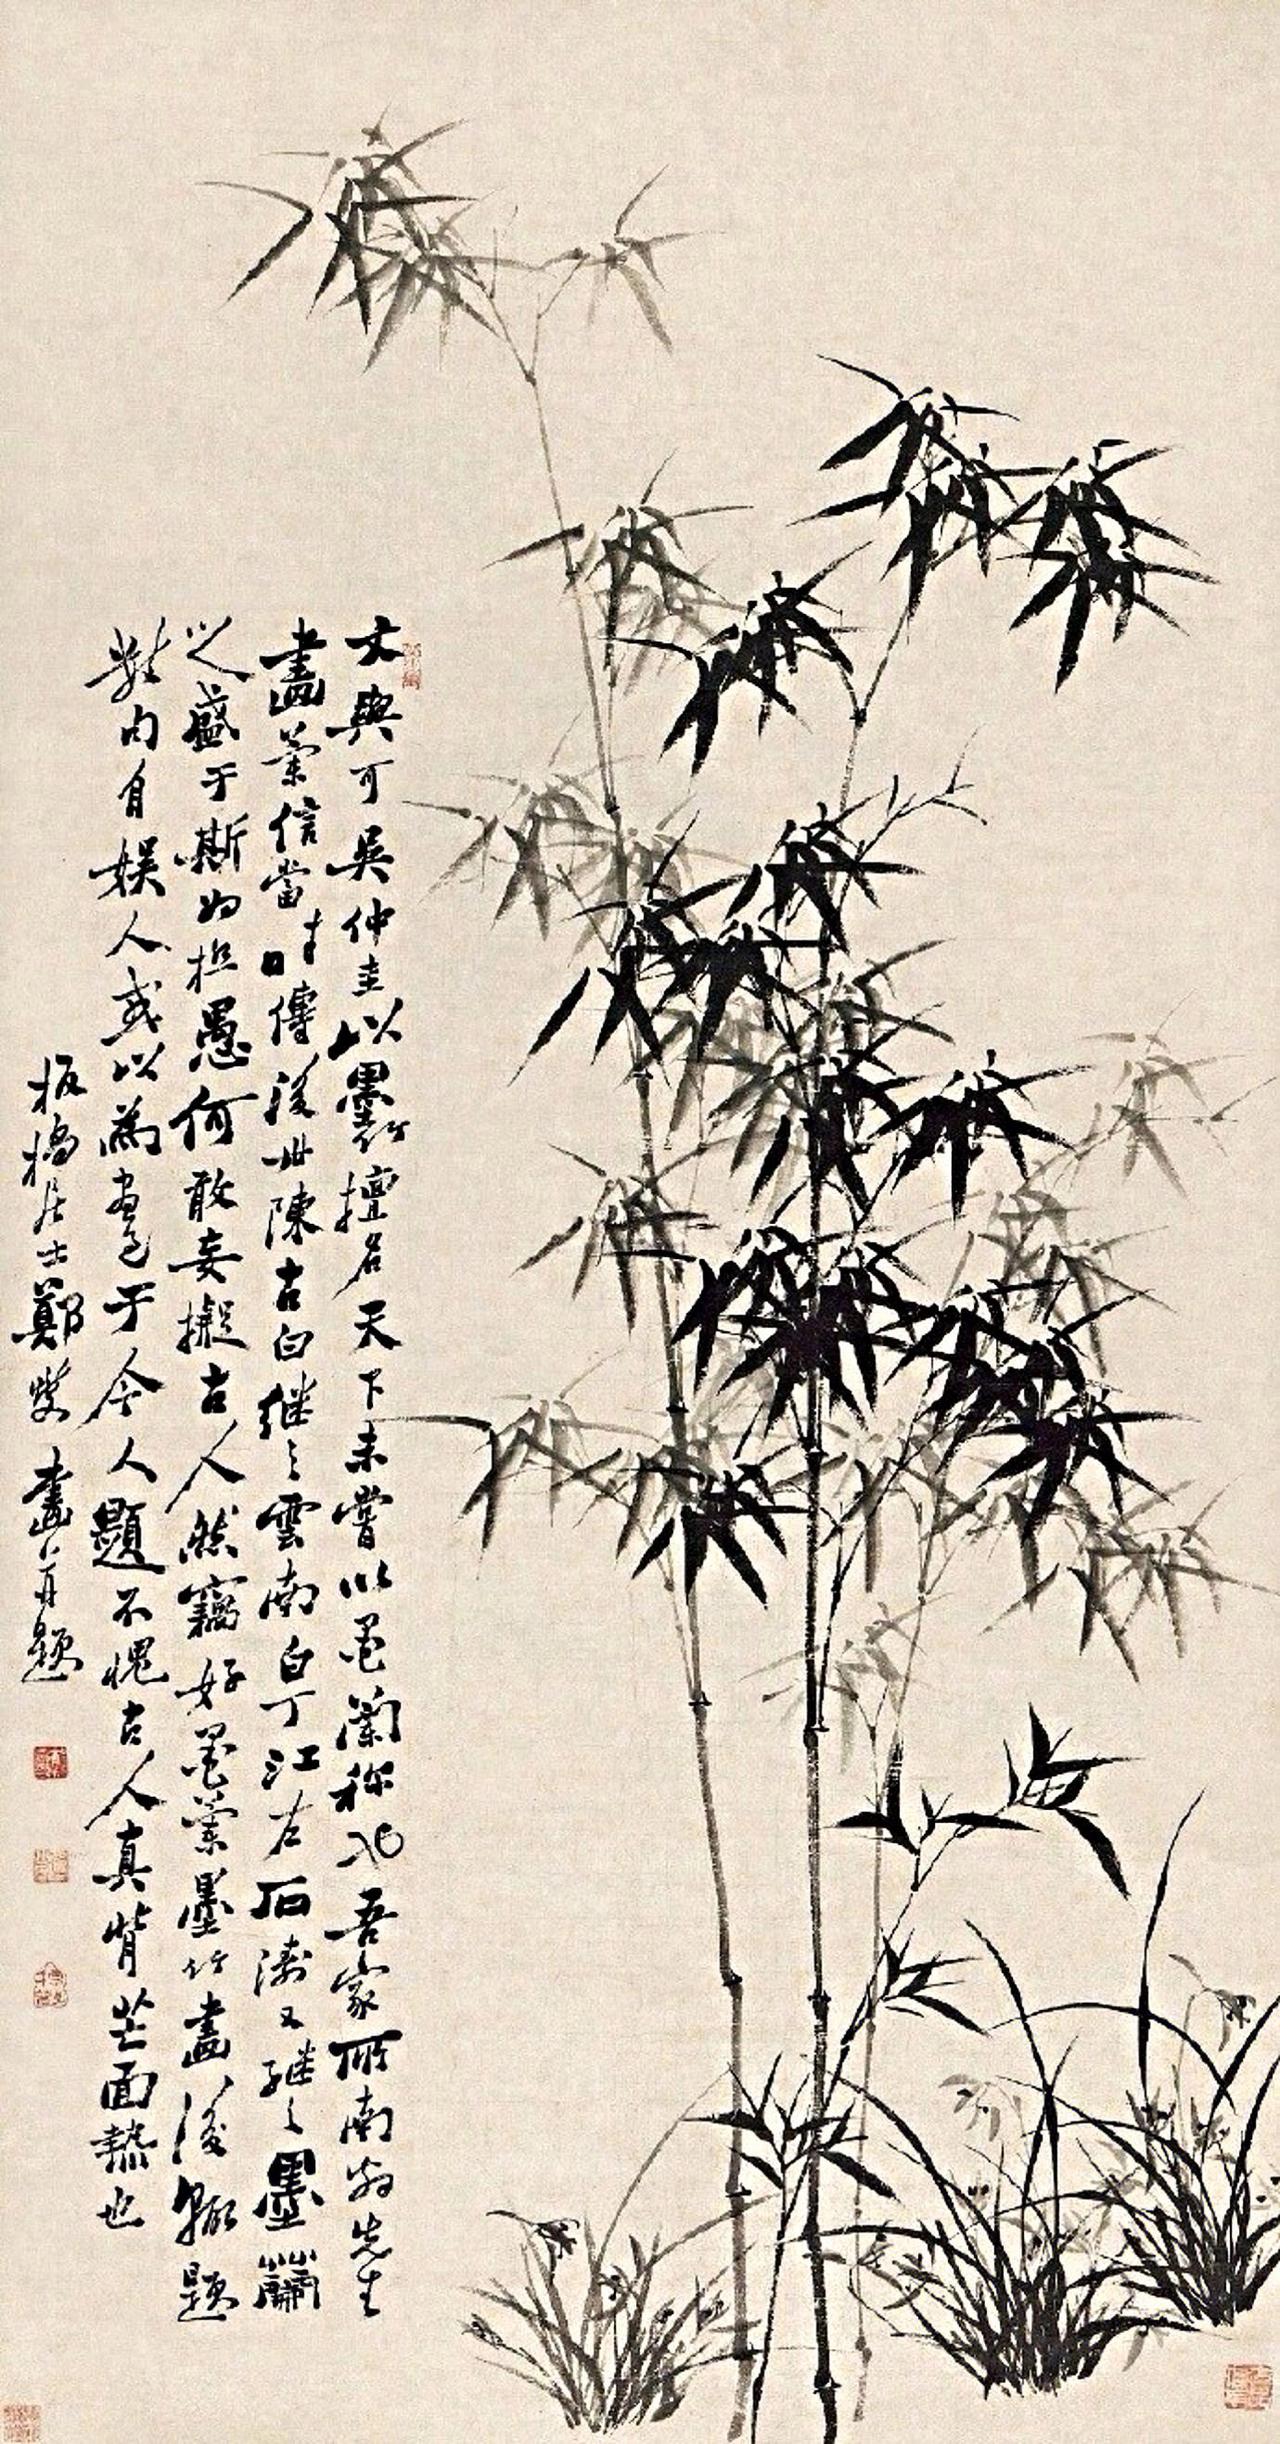 文與可吳仲圭以墨竹擅名天下未嘗以墨蘭称也吾家所南翁先生
畫蘭信當時傳後世陳古白继之雲南白丁江左石濤又継之墨蘭
之盛于斯為极愚何敢妄擬古人然竊好墨蘭墨竹畫後輙題
數句自娱人或以為畫于今人題不愧古人真背芒面热也
板橋居士鄭燮畫并題